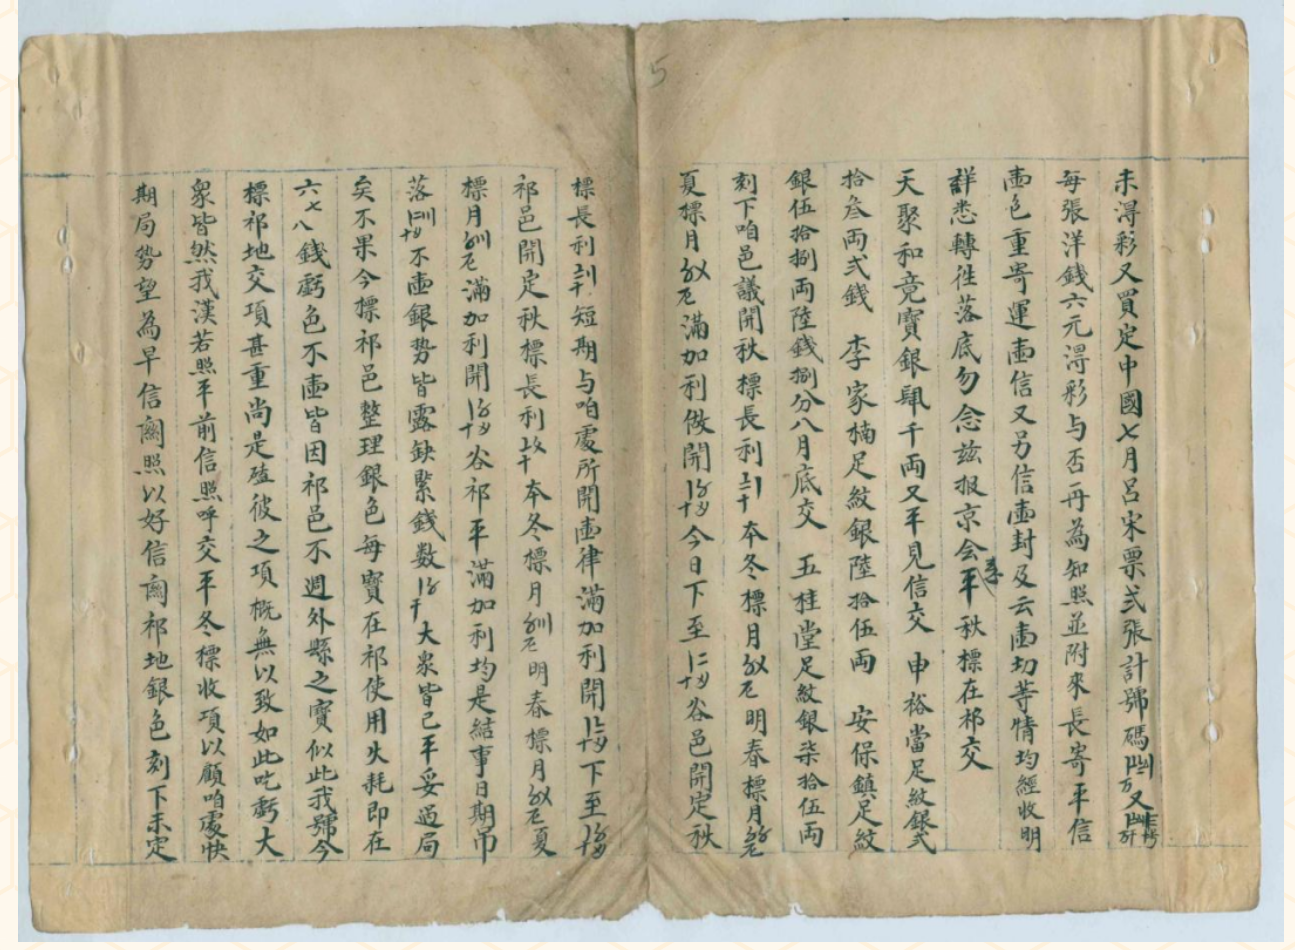 5
未淂彩又買定中國七月呂宋票弍張計號碼万又
每張洋錢六元淂彩与否再為知照並附來長寄平信
壷色重寄運壷信又另信壷封及云壷切等情均經收明
詳悉轉徃落底勿念兹报京会平秋標在祁交
天聚和竟寳銀肆千両又平見信交 申裕當足紋銀弍
拾叁両弍錢 李家楠足紋銀陸拾伍両 安保鎮足紋
銀伍拾捌両陸錢捌分八月底交 五桂堂足紋銀柒拾伍両
刻下咱邑議開秋標長利本冬標月明春標月
夏標月滿加利做開今日下至谷邑開定秋
標長利短期与咱處所開壷律滿加利開下至
祁邑開定秋標長利本冬標月明春標月夏
標月滿加利開谷祁平滿加利均是結事日期吊
落不壷銀势皆露缺緊錢数大衆皆已平妥過局
矣不果今標祁邑整理銀色每寳在祁使用火耗即在
六七八錢虧色不壷皆因祁邑不週外縣之寳似此我號今
標祁地交項甚重尚是磕彼之項概無以致如此吃虧大
衆皆然我漢若照平前信照呼交平冬標收項以顧咱處快
期局势望為早信關照以好信關祁地銀色刻下未定